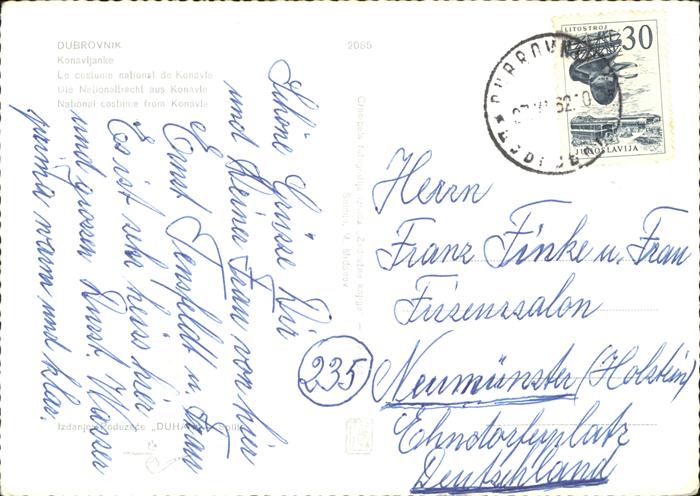 DUBROVNIK
Konavljanke
Le costume national de Konavle
Die Nationaltracht aus Konavle
National costume from Konavle
2085
Schöne Grüsse Dir
und Deiner Frau von hier
Ernst Tensfeldt u. Frau
Es ist sehr heiss hier
und grossen Durst. Wasser
prima warm und klar.
Izdanje Poduzeće „DUHAN“ Split
LITOSTROJ
30
JUGOSLAVIJA
DUBROVNIK
62.10
Herrn
Franz Finke u. Frau
Frisenzsalon
Neumünster (Holstein)
Ehndorferplatz
Deutschland
235